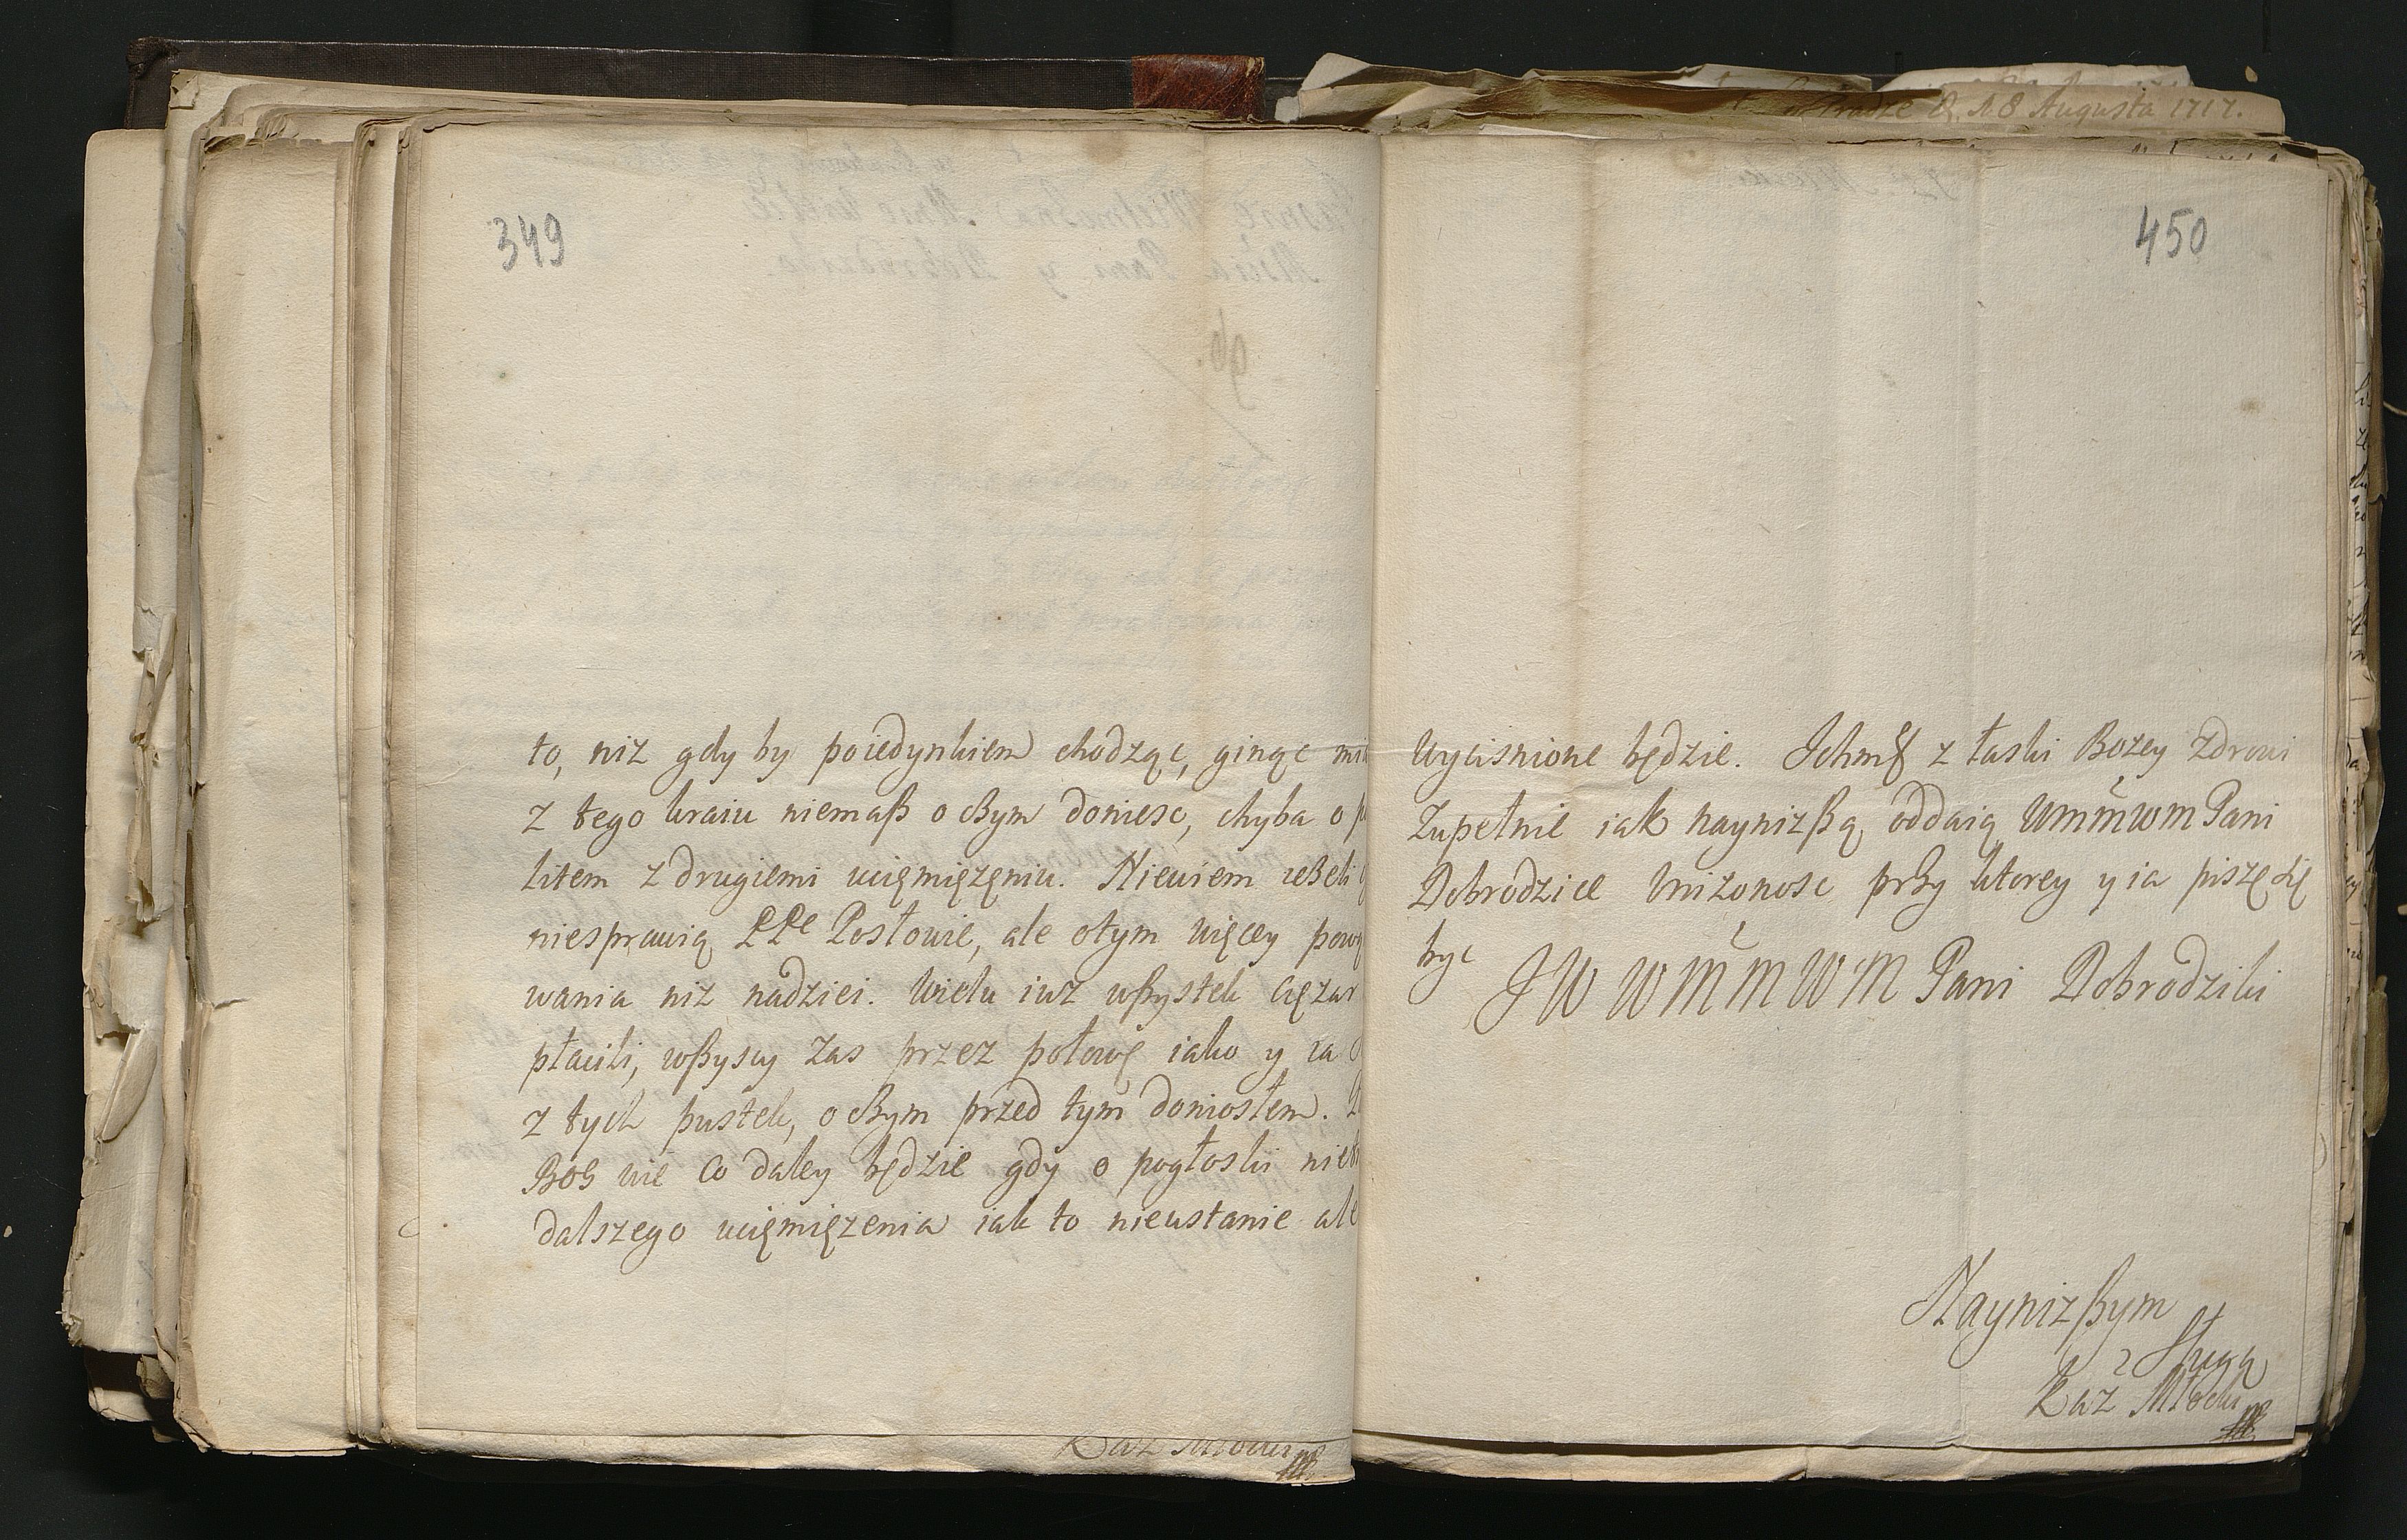 349
to, niz gdy by poiedynkiem chodząc, ginąc
z tego kraiu niemaß o czym doniesc, chyba o
litem z drugiemi ucięmięzęniu. Niewiem ieżeli
niesprawią PPe Posłowie, ale otym więcey
wania niz nadziei. Wielu iuz wßystek cięzar
płacili, wßyscy zas przez połowę iako y ia
z tych pustek, o czym przed tym doniosłem.
Bog wie co daley będzie gdy o pogłoski
dalszego ucięmięzenia iak to nieustanie ale
Kaz Młocki
Augusta 1717.
450
wycisnione będzie. Ichmć z łaski Bozey zdrowi
zupełnie iak naynizßą oddaią WmmwmPani
Dobrodzice unizonosc przy ktorey y ia piszę się
byc
JW WMMWM Pani Dobrodziki
Naynizßym
Sługą
Kaz Młocki